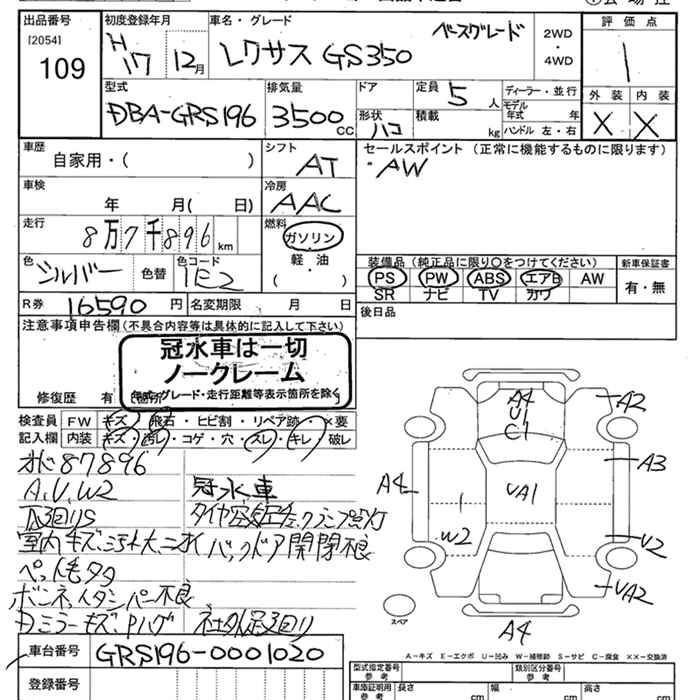 出品番号
[2054]
109
初度登録年月
H17 12月
車名・グレード
レクサス GS350 ベースグレード
2WD
・
4WD
評価点
1
外装 内装
X X
型式
DBA-GRS196
排気量
3500 CC
ドア
形状 ハコ
定員 5 人
積載 kg
ディーラー・並行
モデル年式 年
ハンドル 左・右
車歴
自家用・( )
シフト
AT
セールスポイント(正常に機能するものに限ります)
・AW
車検
年 月( 日)
冷房
AAC
走行
8万7千896 km
燃料
ガソリン
軽・油
( )
色 シルバー
色替
色コード 1E2
装備品(純正品に限り○をつけてください)
新車保証書
PS PW ABS エアB AW
SR ナビ TV カワ
有・無
R券 16590 円
名変期限 月 日
後日品
注意事項申告欄(不具合内容等は具体的に記入して下さい)
冠水車は一切
ノークレーム
年式・グレード・走行距離等表示箇所を除く
修復歴 有(箇所
検査員記入欄
FW キズ・飛石・ヒビ割・リペア跡・×要
内装 キズ・汚レ・コゲ・穴・スレ・キレ・破レ
オド87896
A,V,W2
冠水車
下廻りS
室内キズ、汚大、ニオイ
バックドア開閉不良
ボンネットダンパー不良
社外足廻り
A4
U1
C1
A2
A3
A4
VA1
1
W2
V2
VA2
A4
スペア
A-キズ E-エクボ U-凹み W-補修跡 S-サビ C-腐食 XX-交換済
車台番号
GRS196-0001020
登録番号
型式指定番号
参考
類別区分番号
参考
車庫証明用
参考
長さ cm
幅 cm
高さ cm